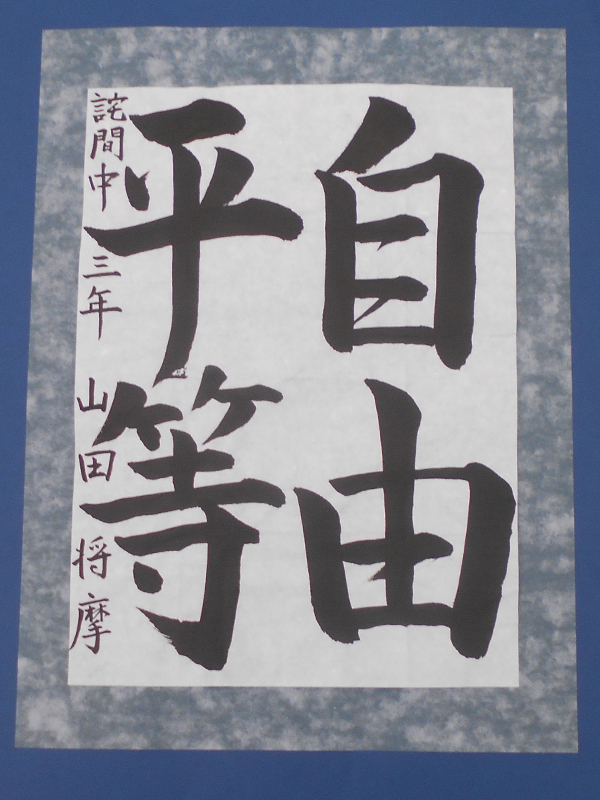 自由
平等
詫間中 三年 山田 将摩